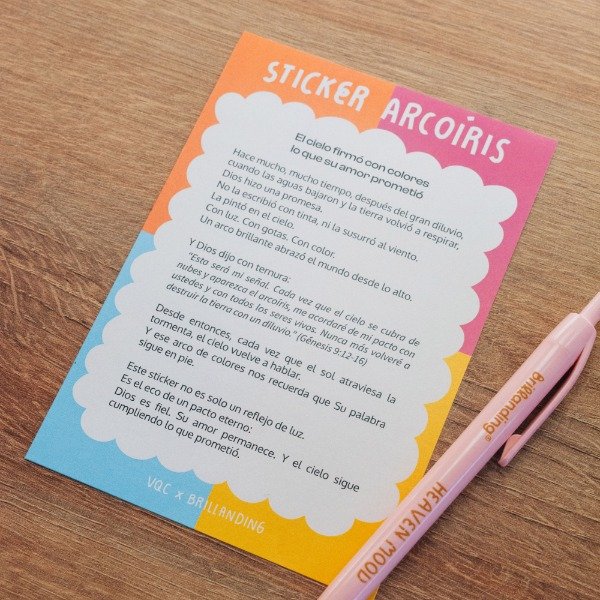 STICKER ARCOÍRIS
El cielo firmó con colores
lo que su amor prometió
Hace mucho, mucho tiempo, después del gran diluvio,
cuando las aguas bajaron y la tierra volvió a respirar,
Dios hizo una promesa.
No la escribió con tinta, ni la susurró al viento.
La pintó en el cielo.
Con luz. Con gotas. Con color.
Un arco brillante abrazó el mundo desde lo alto.
Y Dios dijo con ternura:
"Esta será mi señal. Cada vez que el cielo se cubra de
nubes y aparezca el arcoíris, me acordaré de mi pacto con
ustedes y con todos los seres vivos. Nunca más volveré a
destruir la tierra con un diluvio." (Génesis 9:12-16)
Desde entonces, cada vez que el sol atraviesa la
tormenta, el cielo vuelve a hablar.
Y ese arco de colores nos recuerda que Su palabra
sigue en pie.
Este sticker no es solo un reflejo de luz.
Es el eco de un pacto eterno:
Dios es fiel. Su amor permanece. Y el cielo sigue
cumpliendo lo que prometió.
VQC X BRILLANDING
Brillanding®
HEAVEN MOOD